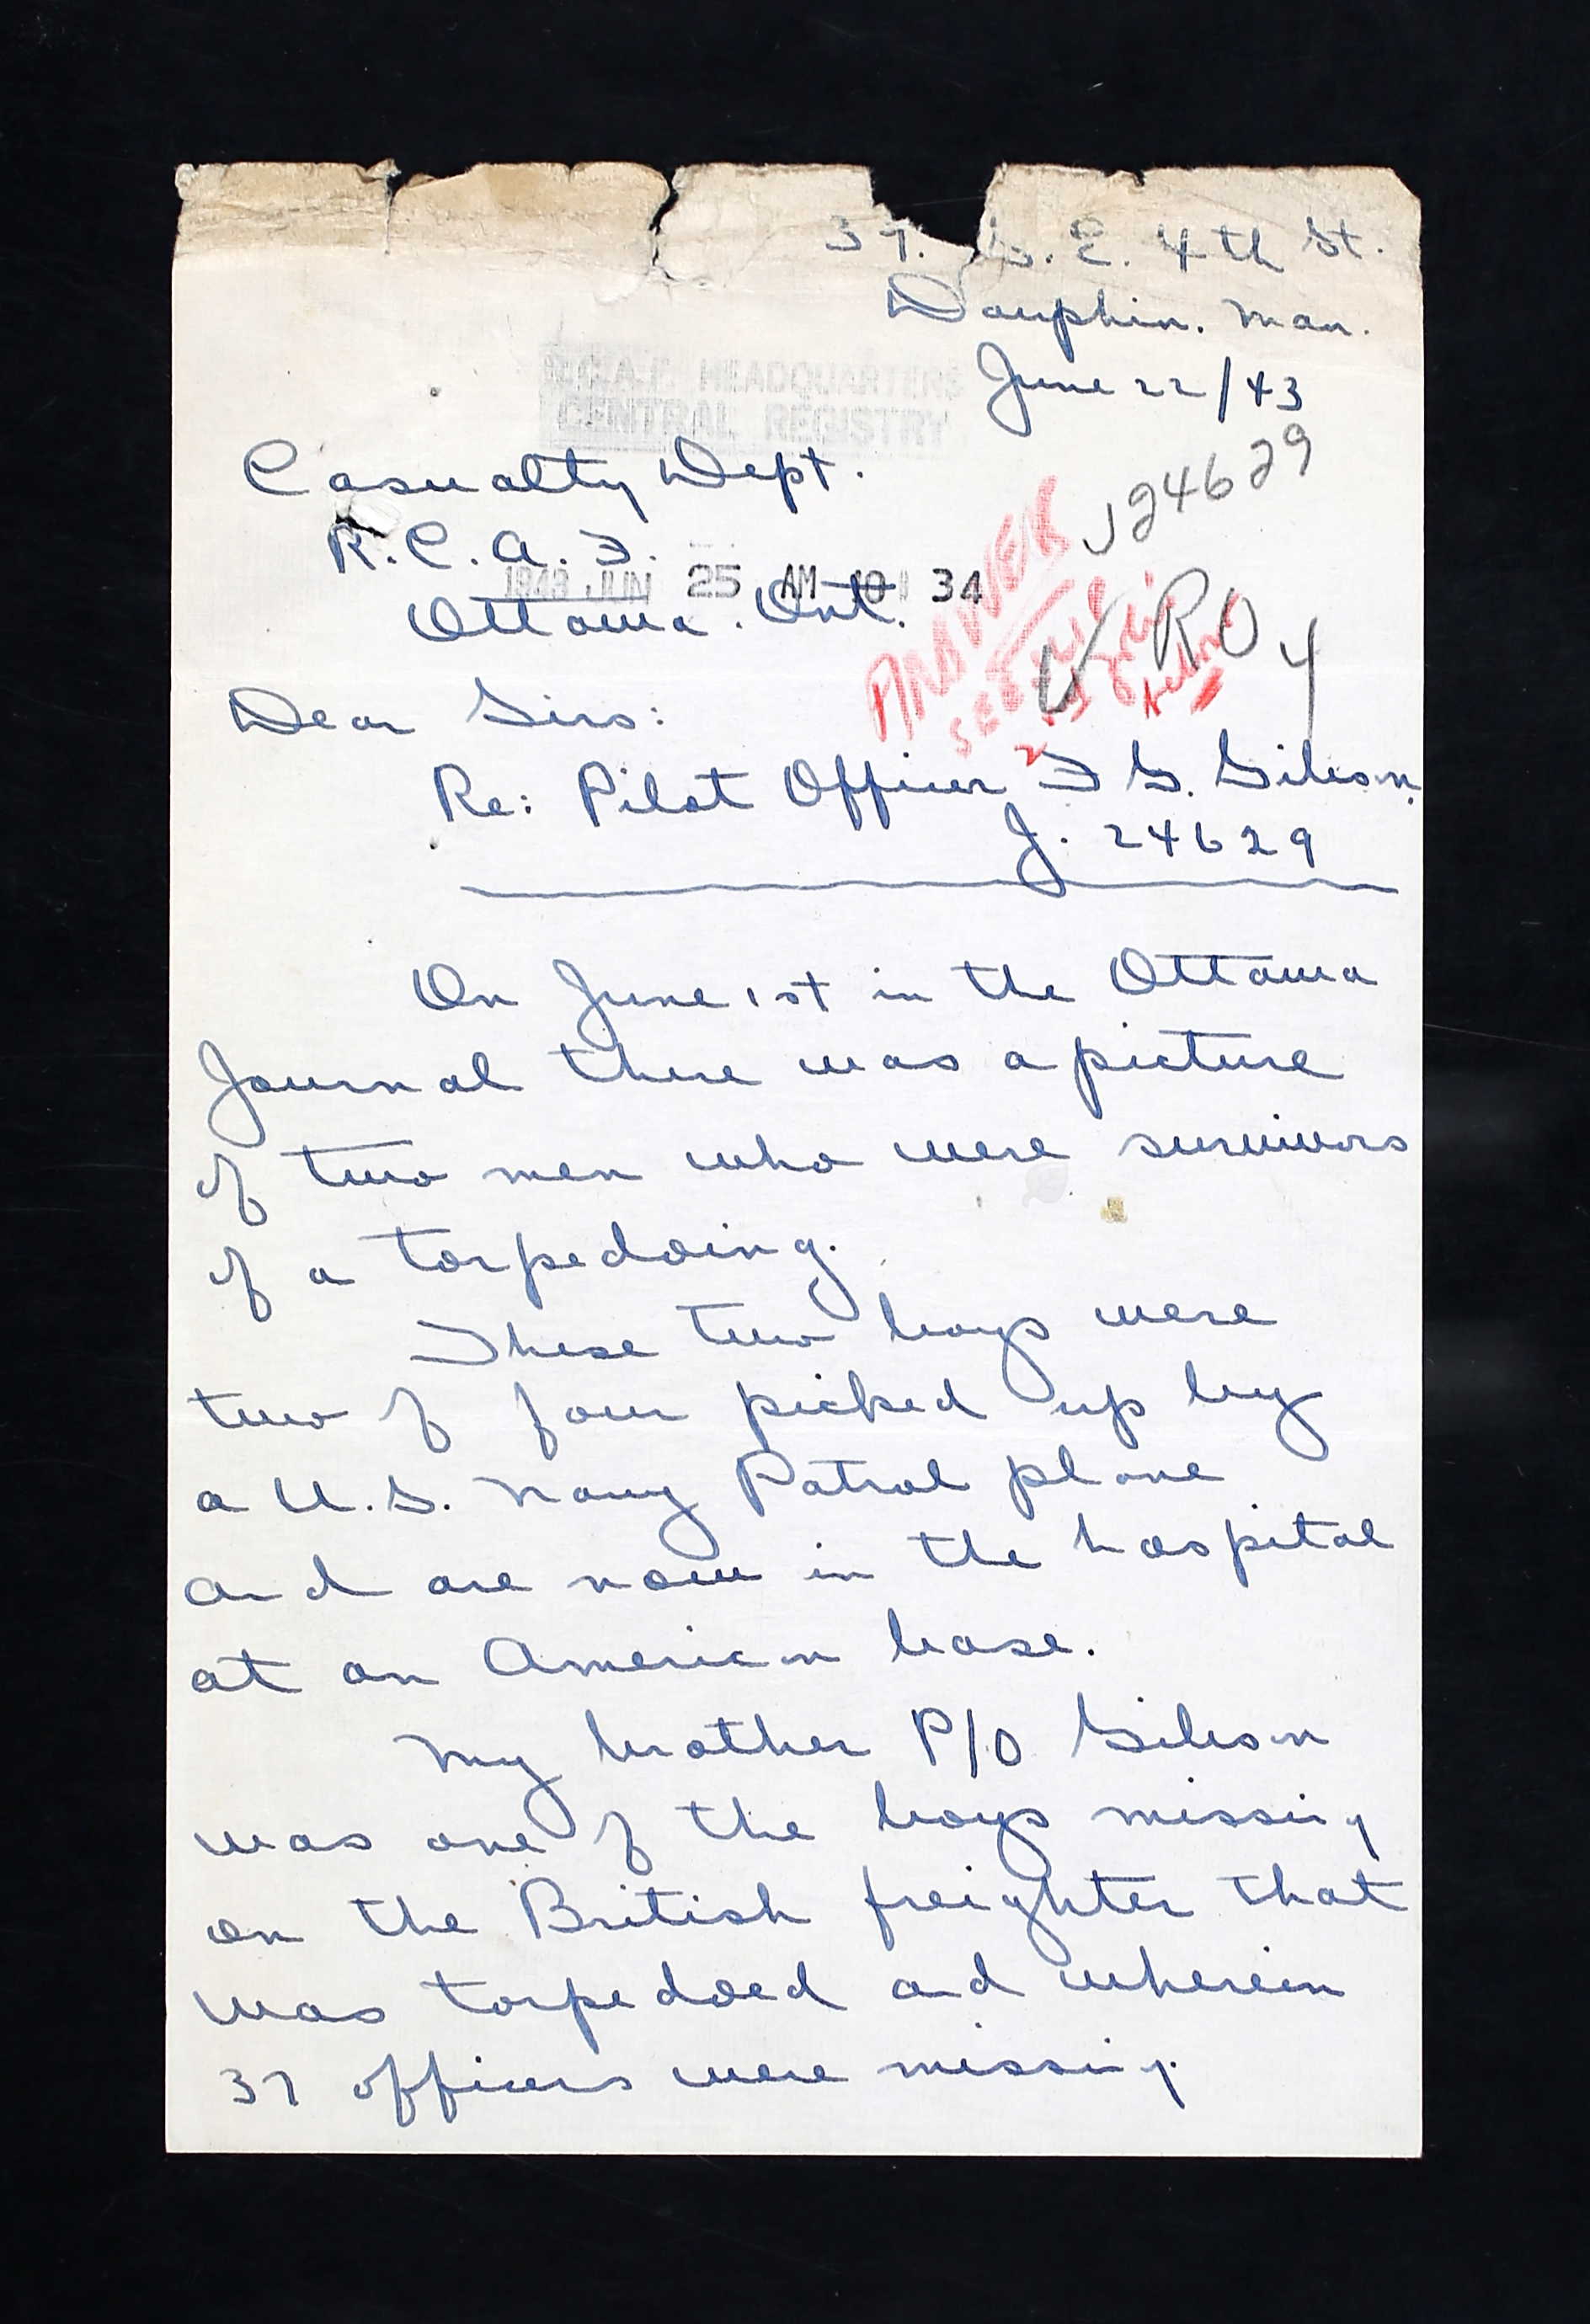 37. S. E. 4th St.
Dauphin. Man.
June 22/43
R.C.A.F. HEADQUARTERS
CENTRAL REGISTRY
J24629
Casualty Dept.
R.C.A.F.
1943 JUN 25 AM 10 34
Ottawa. Ont.
ANSWER
SEE
RO 4
Dear Sirs:
Re: Pilot Officer F G. Gibson.
J. 24629
On June 1st in the Ottawa
Journal there was a picture
of two men who were survivors
of a torpedoing.
These two boys were
two of four picked up by
a U.S. Navy Patrol plane
and are now in the hospital
at an American base.
My brother P/O Gibson
was one of the boys missing
on the British freighter that
was torpedoed and wherein
37 officers were missing.